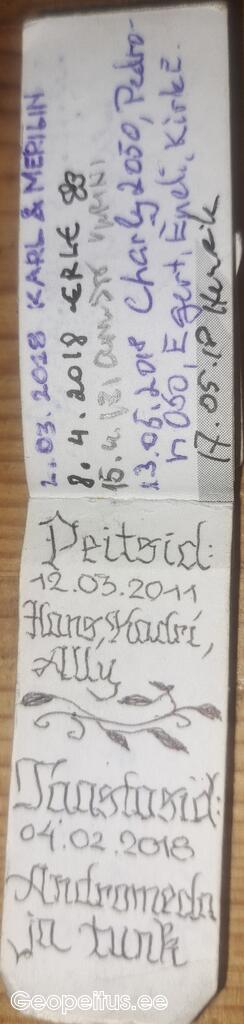 2.03.2018 KARL & MERILIN
8.4.2018 ERLE
15.4.
13.05.2018 Charly2050, Pedro-
n050, Egert, Endi, Kirke.
17.05.18
Peitsid:
12.03.2011
Hans, Kadri,
Ally
Taastasid:
04.02.2018
Andromeda
ja tunk
Geopeitus.ee